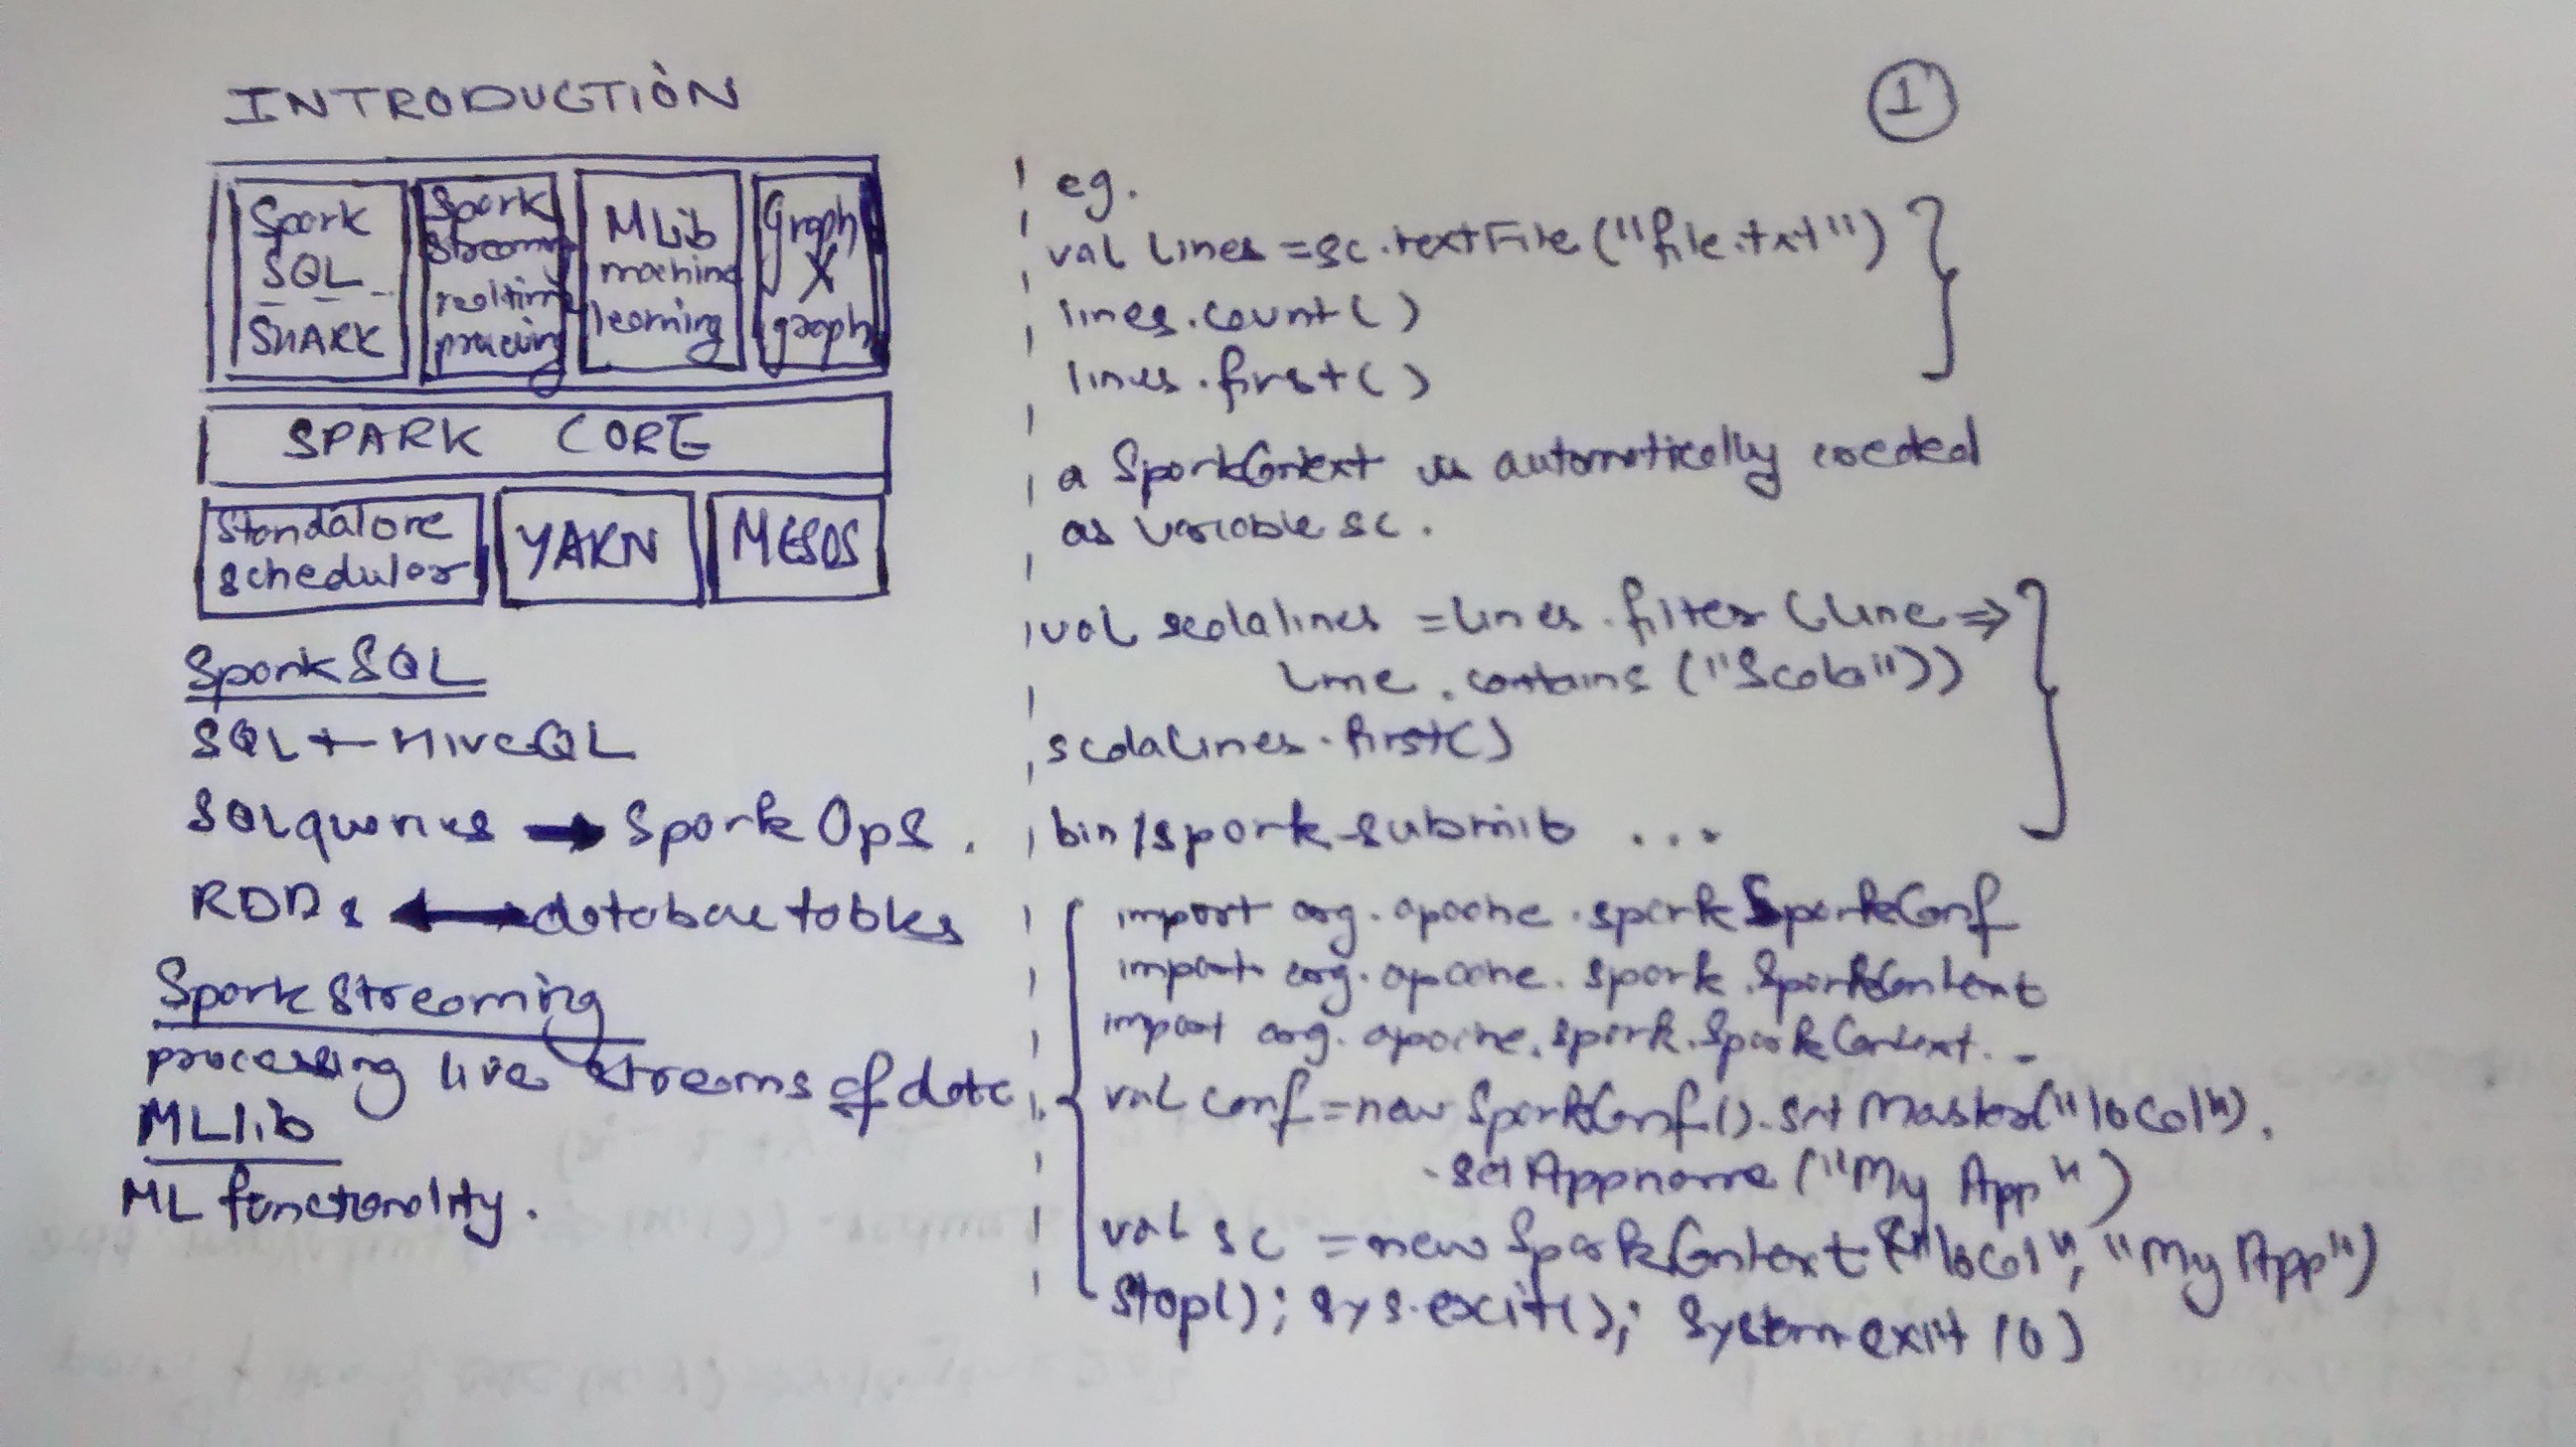 INTRODUCTION
1
Spark
SQL
SHARK
Spark
streaming
realtime
procesing
MLib
machine
learning
Graph
X
graph
SPARK CORE
Standalone
scheduler
YARN
MESOS
Spark SQL
SQL + HiveQL
SQL queries → Spark Ops.
RDDs ↔ database tables
Spark Streaming
processing live streams of data
MLlib
ML functionality.
eg.
val lines = sc.textFile("file.txt")
lines.count()
lines.first()
a SparkContext is automatically created
as variable sc.
val scalalines = lines.filter(line =>
line.contains("Scala"))
scalalines.first()
bin/spark-submit ...
import org.apache.spark SparkConf
import org.apache.spark.SparkContext
import org.apache.spark.SparkContext._
val conf = new SparkConf().setMaster("local").
.setAppname("My App")
val sc = new SparkContext("local", "My App")
Stop(); sys.exit(); System exit(0)